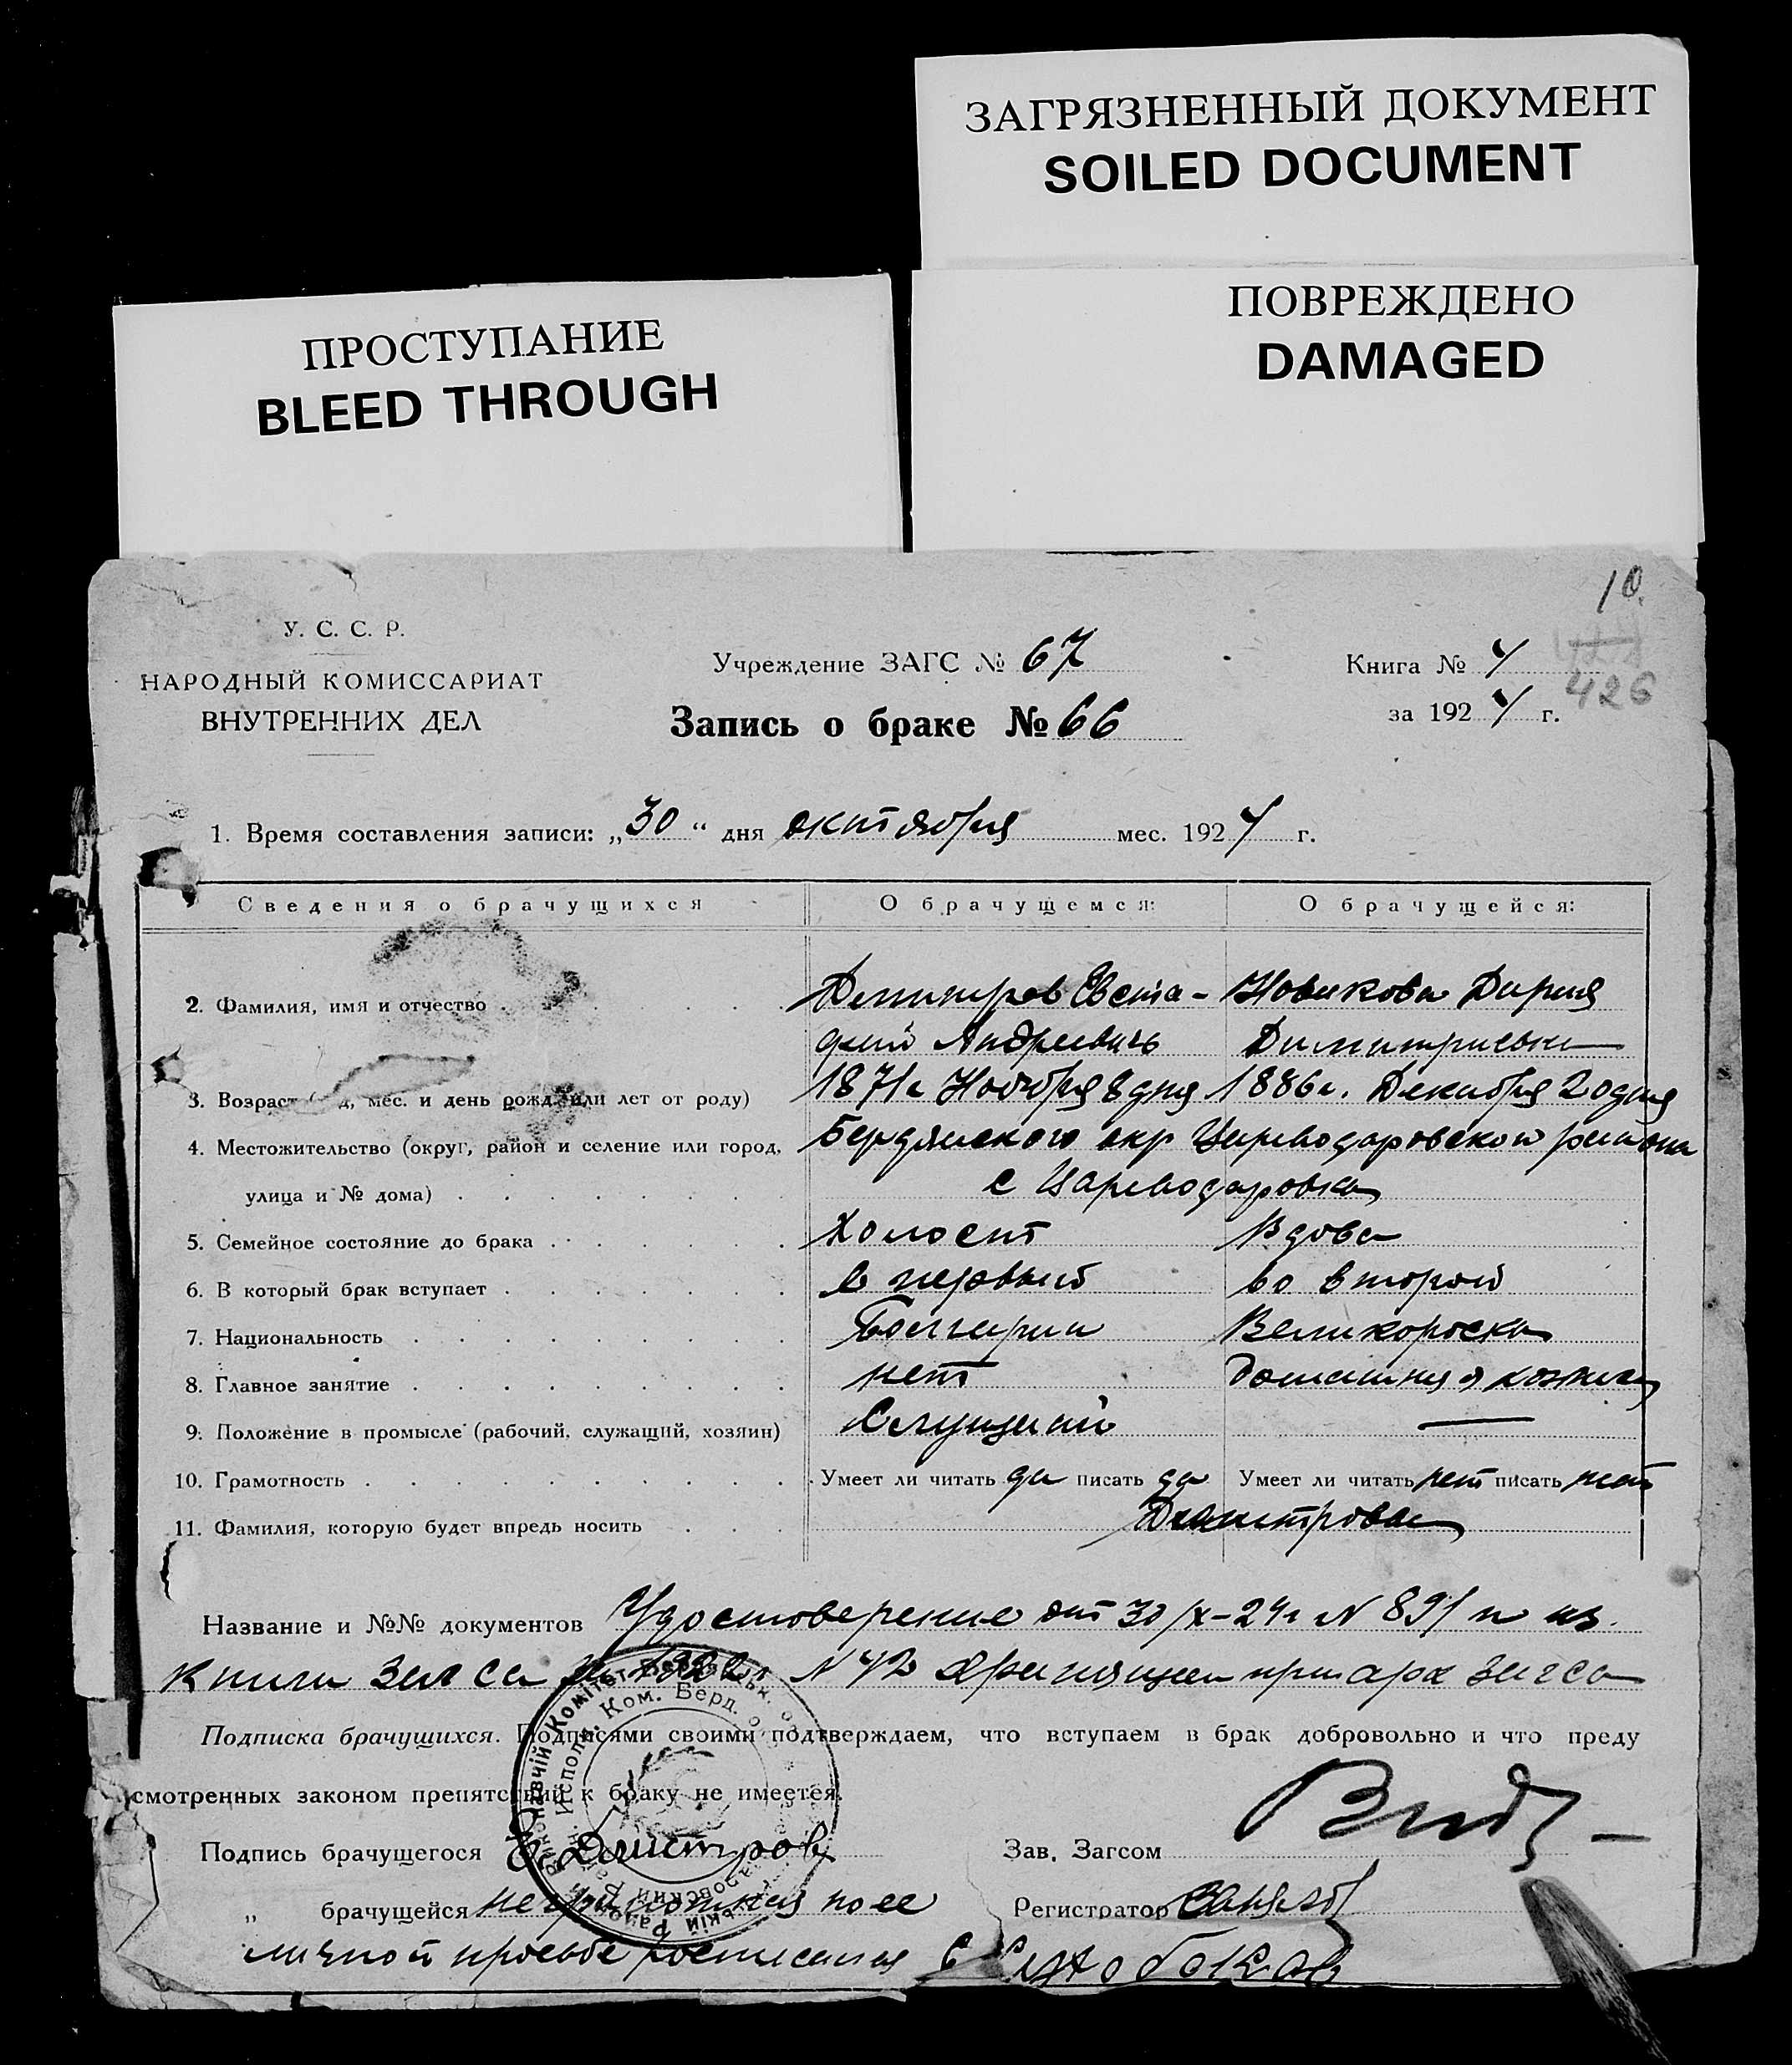 ЗАГРЯЗНЕННЫЙ ДОКУМЕНТ
SOILED DOCUMENT
ПОВРЕЖДЕНО
DAMAGED
ПРОСТУПАНИЕ
BLEED THROUGH
10.
У. С. С. Р.
НАРОДНЫЙ КОМИССАРИАТ
ВНУТРЕННИХ ДЕЛ
Учреждение ЗАГС № 67
Запись о браке № 66
Книга № 4
426
за 1924 г.
1. Время составления записи: „30“ дня октября мес. 1924 г.
Сведения о брачущихся О брачущемся: О брачущейся:
2. Фамилия, имя и отчество Димитров Евста- Новикова Дария
фий Андреевич Димитриевна
3. Возраст мес. и день рожд. или лет от роду) 1871г Ноября 8 дня 1886г. Декабря 20 дня
4. Местожительство (округ, район и селение или город, Бердянского окр Цареводаровского района
улица и № дома) с Цареводаровка
5. Семейное состояние до брака Холост Вдова
6. В который брак вступает в первый во второй
7. Национальность Болгарин Великороска
8. Главное занятие нет домашняя хозяйка
9. Положение в промысле (рабочий, служащий, хозяин) Служащий —
10. Грамотность Умеет ли читать да писать да Умеет ли читать нет писать нет
11. Фамилия, которую будет впредь носить Димитрова
Название и №№ документов Удостоверение от 30/X-24г N 891 из
книги Загса 1922г N 42 хранящей при арх Загса
Подписка брачущихся. Подписями своими подтверждаем, что вступаем в брак добровольно и что преду
смотренных законом препятствий к браку не имеется.
Подпись брачущегося Е Дмитров Зав. Загсом
„ брачущейся неграмотная по ее Регистратор
личной просьбе росписался С
Исполн. Ком. Берд.